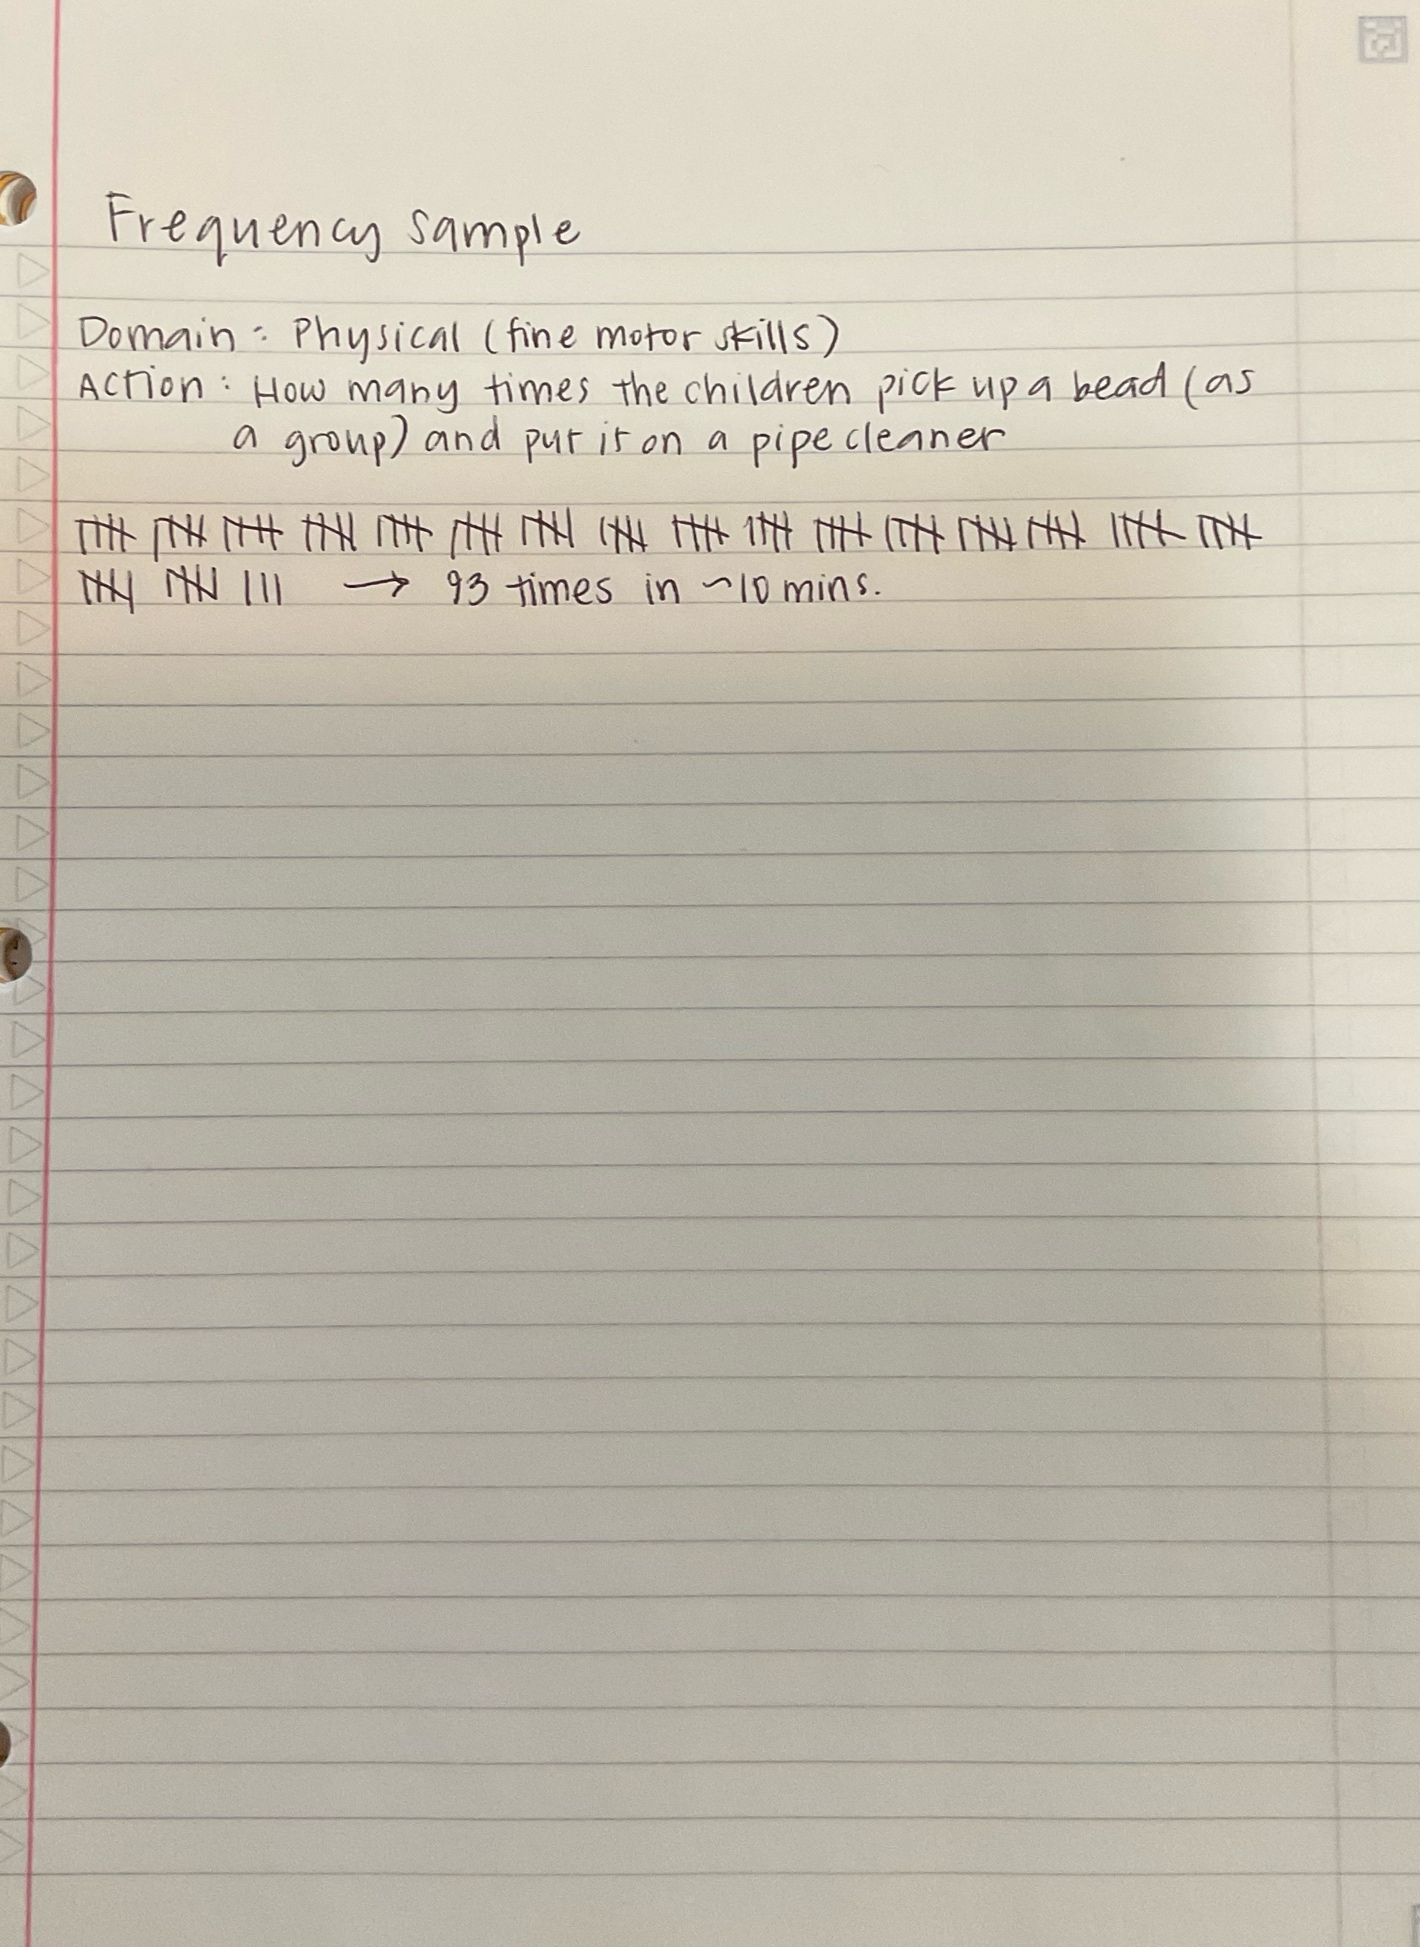 Frequency sample
Domain: Physical (fine motor skills)
Action: How many times the children pick up a bead (as
a group) and put it on a pipe cleaner
卌 卌 卌 卌 卌 卌 卌 卌 卌 卌 卌 卌 卌 卌 卌 卌
卌 卌 III → 93 times in ~10 mins.